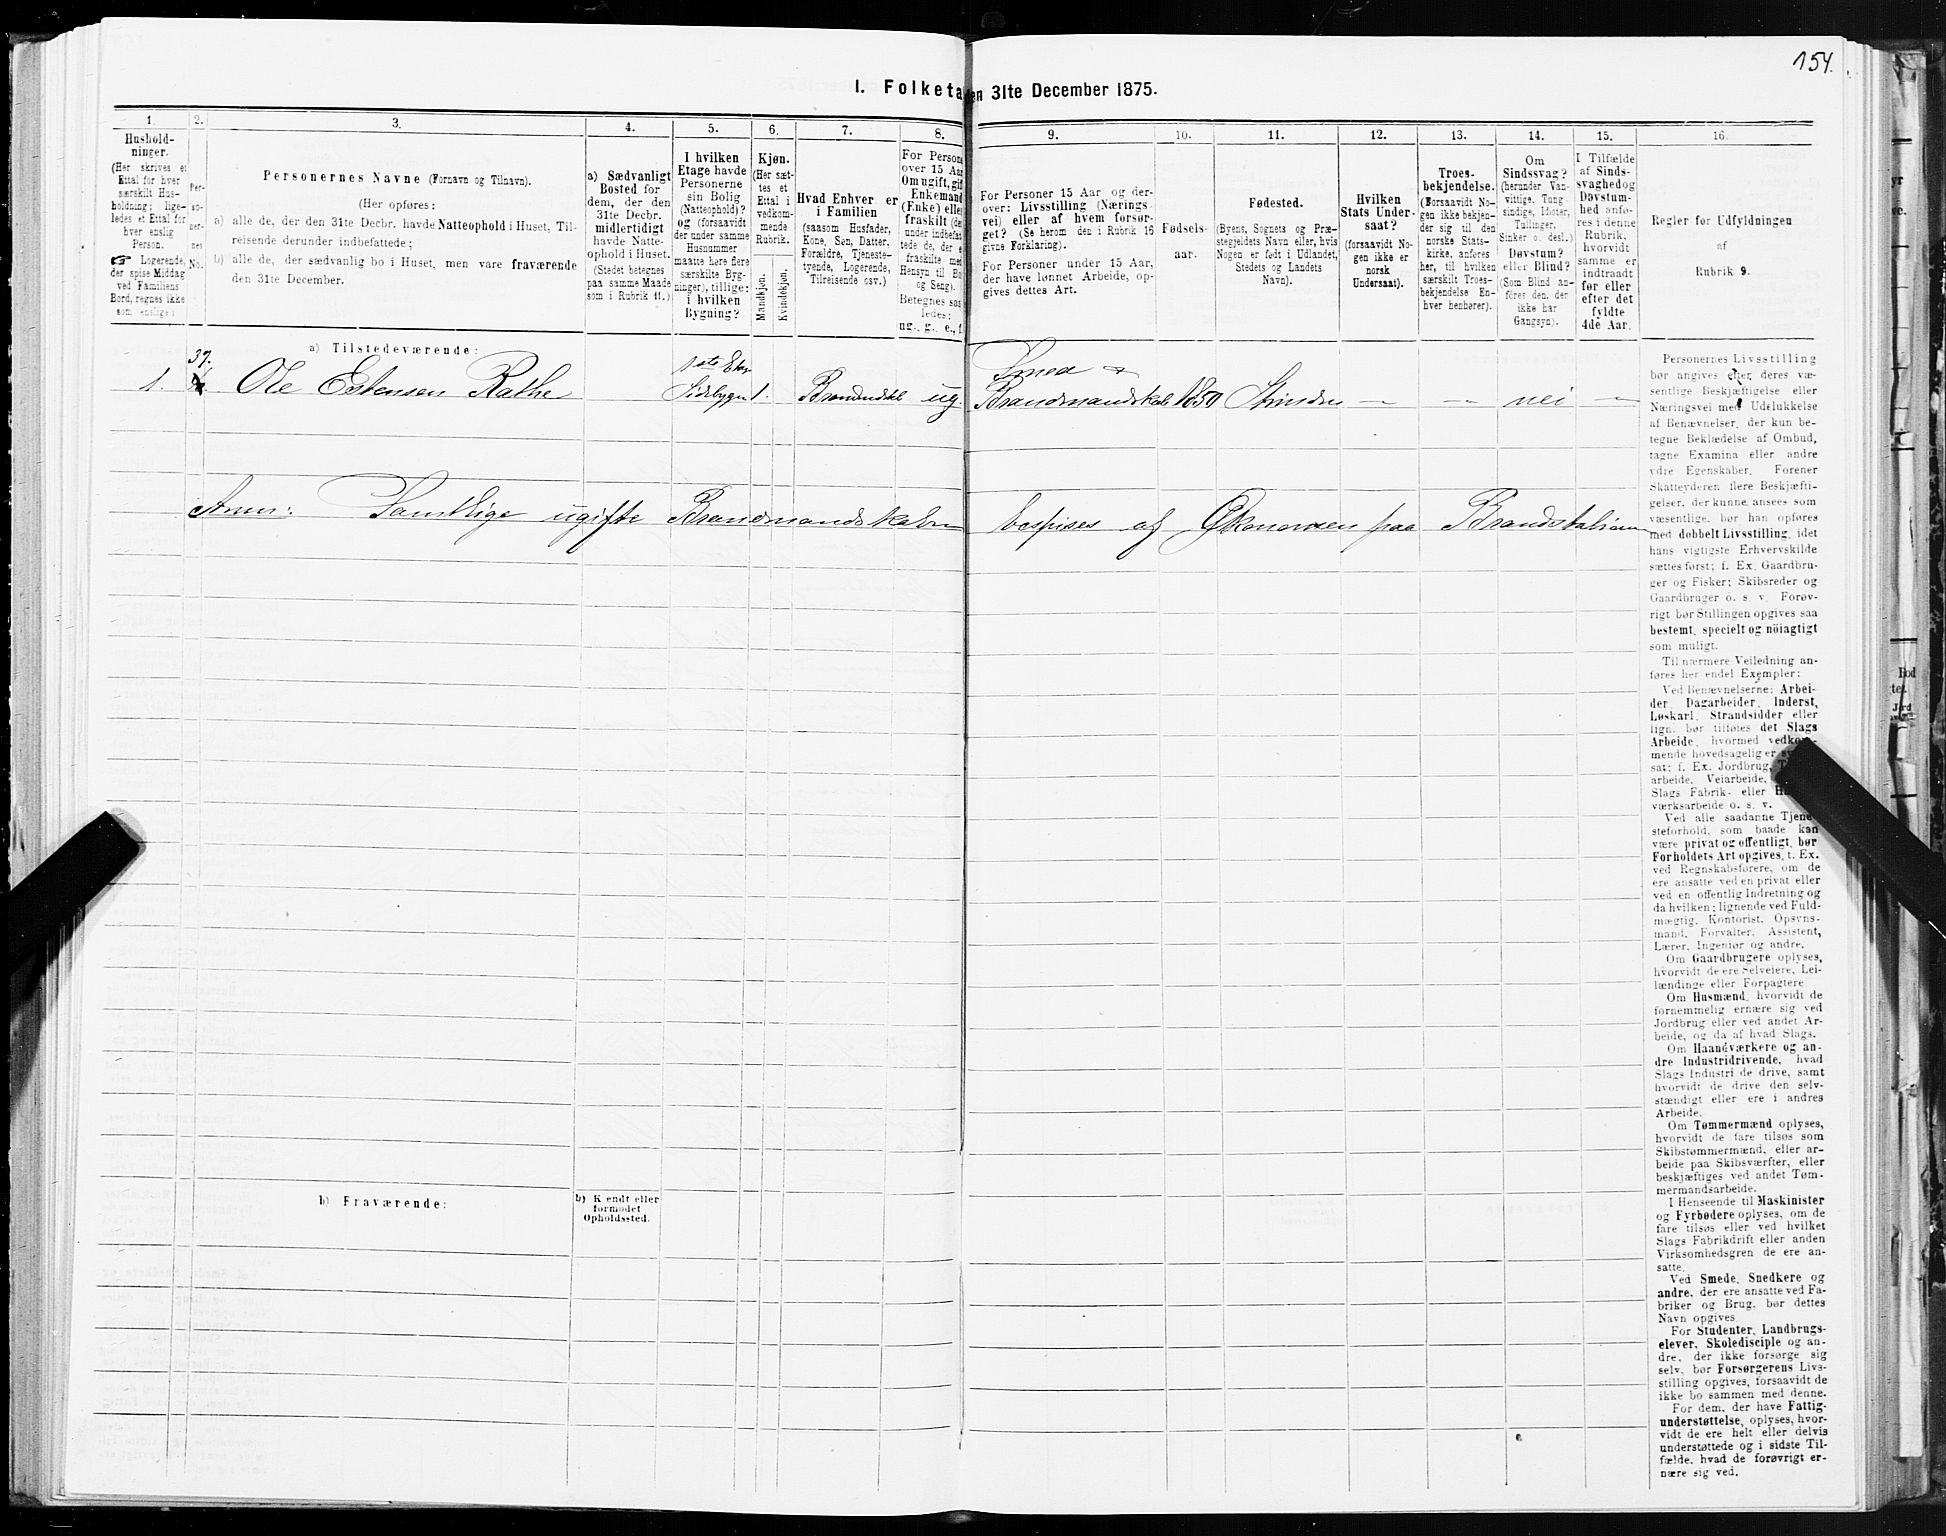 154.
I. Folketa
en 31te December 1875.
1.
Hushold-
ninger.
(Her skrives et
Ettal for hver
særskilt Hus-
holdning; lige-
ledes et Ettal for
hver enslig
Person.
☞ Logerende,
der spise Middag
ved Familiens
Bord, regnes ikke
som enslige.)
2.
Per-
so-
ner-
nes
No.
3.
Personernes Navne (Fornavn og Tilnavn).
(Her opføres:
a) alle de, der den 31te Decbr. havde Natteophold i Huset, Til-
reisende derunder indbefattede;
b) alle de, der sædvanlig bo i Huset, men vare fraværende
den 31te December.
4.
a) Sædvanligt
Bosted for
dem, der den
31te Decbr.
midlertidigt
havde Natte-
ophold i Huset.
(Stedet betegnes
paa samme Maade
som i Rubrik 11.)
5.
I hvilken
Etage havde
Personerne
sin Bolig
(Natteophold)?
og (forsaavidt
der under samme
Husnummer
maatte høre flere
særskilte Byg-
ninger), tillige:
i hvilken
Bygning?
6.
Kjøn.
(Her sæt-
tes et
Ettal i
vedkom-
mende
Rubrik.
Mandkjøn.
Kvindekjøn.
7.
Hvad Enhver er
i Familien
(saasom Husfader,
Kone, Søn, Datter,
Forældre, Tjeneste-
tyende, Logerende,
Tilreisende osv.)
8.
For Persone
over 15 Aar
Om ugift, gif
Enkemand
(Enke) elle
fraskilt (der
under indbefat
tede de, der e
fraskilte med
Hensyn til Bo
og Seng).
Betegnes saa
ledes:
ug., g., e., f.
9.
For Personer 15 Aar og der-
over: Livsstilling (Nærings-
vei) eller af hvem forsør-
get? (Se herom den i Rubrik 16
givne Forklaring).
For Personer under 15 Aar,
der have lønnet Arbeide, op-
gives dettes Art.
10.
Fødsels-
aar.
11.
Fødested.
(Byens, Sognets og Præ-
stegjeldets Navn eller, hvis
Nogen er født i Udlandet,
Stedets og Landets
Navn).
12.
Hvilken
Stats Under-
saat?
(forsaavidt No-
gen ikke er
norsk
Undersaat).
13.
Troes-
bekjendelse.
(Forsaavidt No-
gen ikke bekjen-
der sig til den
norske Stats-
kirke, anføres
her, til hvilken
særskilt Troes-
bekjendelse En-
hver henhører).
14.
Om
Sindssvag?
(herunder Van-
vittige, Tung
sindige, Idioter,
Tullinger,
Sinker o. desl.)
Døvstum?
eller Blind?
(Som Blind an-
føres den, der
ikke har
Gangsyn).
15.
I Tilfælde
af Sinds-
svaghed og
Døvstum-
hed anfø-
res i denne
Rubrik,
hvorvidt
samme er
indtraadt
før eller
efter det
fyldte
4de Aar.
16.
Regler for Udfyldningen
af
Rubrik 9.
a) Tilstedeværende:
37.
1ste Etag
Smed
1. Ole Estensen Rathe Sidebygn 1. ug. Brandmandskab 1850 Strinden — — nei —
Anm: Samtlige ugifte Brandmandskaber bespises af Økonomen paa Brandstationen
b) Fraværende:
b) Kjendt eller
formodet
Opholdssted.
Personernes Livsstilling
bør angives efter deres væ-
sentlige Beskjæftigelse eller
Næringsvei med Udelukkelse
af Benævnelser, der kun be-
tegne Beklædelse af Ombud,
tagne Examina eller andre
ydre Egenskaber. Forener
Skatteyderen flere Beskjæfti-
gelser, der kunne ansees som
væsentlige, bør han opføres
med dobbelt Livsstilling, idet
hans vigtigste Erhvervskilde
sættes først; f. Ex. Gaardbru-
ger og Fisker; Skibsreder og
Gaardbruger o. s. v. Forøv-
rigt bør Stillingen opgives saa
bestemt, specielt og nöiagtigt
som muligt.
Til nærmere Veiledning an-
føres her endel Exempler:
Ved Benævnelserne: Arbei-
der, Dagarbeider, Inderst,
Løskarl, Strandsidder eller
lign. bør tilføies det Slags
Arbeide, hvormed vedkom-
mende hovedsagelig er sy
sat; f. Ex. Jordbrug, T
arbeide, Veiarbeide,
Slags Fabrik- eller H
værksarbeide o. s. v.
Ved alle saadanne Tjene
steforhold, som baade kan
være privat og offentligt, bør
Forholdets Art opgives, t. Ex.
ved Regnskabsførere, om de
ere ansatte ved en privat eller
ved en offentlig Indretning og
da hvilken; lignende ved Fuld-
mægtig, Kontorist, Opsyns-
mand, Forvalter, Assistent,
Lærer, Ingeniør og andre.
Om Gaardbrugere oplyses,
hvorvidt de ere Selveiere, Lei-
lændinge eller Forpagtere
Om Husmænd, hvorvidt de
fornemmelig ernære sig ved
Jordbrug eller ved andet Ar-
beide, og da af hvad Slags.
Om Haandværkere og an-
dre Industridrivende, hvad
Slags Industri de drive, samt
hvorvidt de drive den selv-
stændigt eller ere i andres
Arbeide.
Om Tømmermænd oplyses,
hvorvidt de fare tilsøs som
Skibstømmermænd, eller ar-
beide paa Skibsværfter, eller
beskjæftiges ved andet Tøm-
mermandsarbeide.
I Henseende til Maskinister
og Fyrbødere oplyses, om de
fare tilsøs eller ved hvilket
Slags Fabrikdrift eller anden
Virksomhedsgren de ere an-
satte.
Ved Smede, Snedkere og
andre, der ere ansatte ved Fa-
briker og Brug, bør dettes
Navn opgives.
For Studenter, Landbrugs-
elever, Skoledisciple og an-
dre, der ikke forsørge sig
selv, bør Forsørgerens Livs-
stilling opgives, forsaavidt de
ikke bo sammen med denne.
For dem, der have Fattig-
understøttelse, oplyses, hvor-
vidt de ere helt eller delvis
understøttede og i sidste Til-
fælde, hvad de forøvrigt er-
nære sig ved.